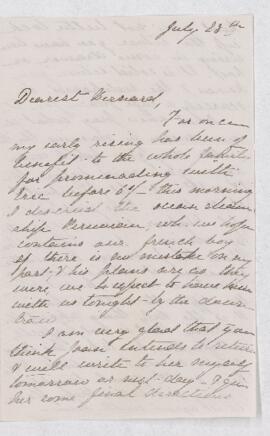 July 28th
Dearest Bernard,
For once
my early rising has been of
benefit to the whole family
for promenading with
Eric before 6 - this morning
I descried the ocean steam
ship Peruvian, wh. we hope
contains our french boy
if there is no mistake on my
part & his plans
were, we expect to have him
with us tonight - by the down
train
I am very glad that you
think Joan intends to return
& will write to her myself
tomorrow or next day - & give
her some final directions